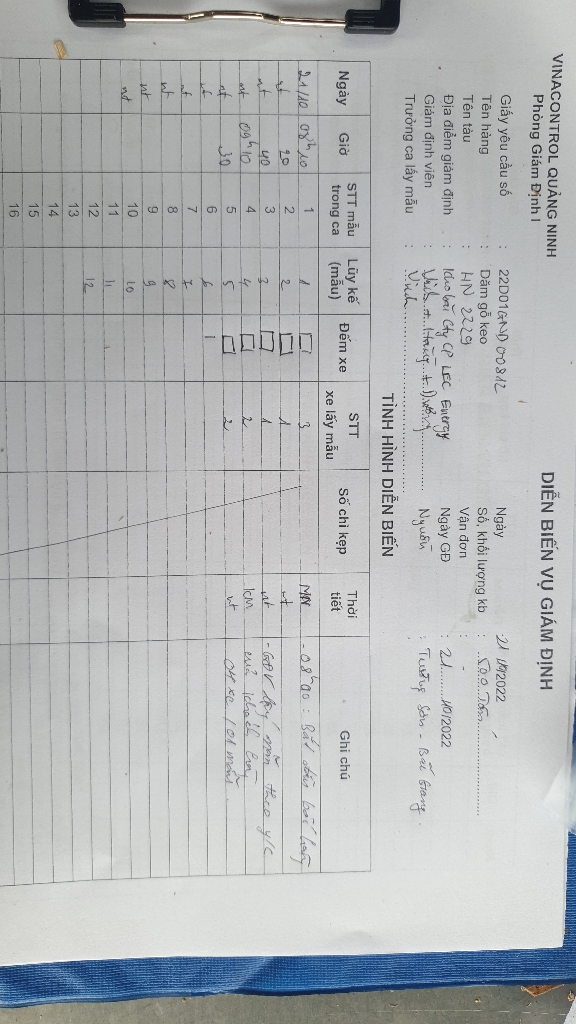 VINACONTROL QUẢNG NINH
Phòng Giám Định I
DIỄN BIẾN VỤ GIÁM ĐỊNH
Giấy yêu cầu số : 22D01GND 00812
Ngày : 21/10/2022
Tên hàng : Dăm gỗ keo
Số, khối lượng kb : 500 Tấn
Tên tàu : HN 2229
Vận đơn : -
Địa điểm giám định : Kho bãi Cty CP LEC Energy
Ngày GĐ : 21/10/2022
Giám định viên : + Hùng + Dương
Nguồn : Trường Sơn - Bắc Giang.
Trưởng ca lấy mẫu : Vinh
TÌNH HÌNH DIỄN BIẾN
Ngày Giờ STT mẫu trong ca Lũy kế (mẫu) Đếm xe STT xe lấy mẫu Số chì kẹp Thời tiết Ghi chú
21/10 08h10 1 1 3 - 08h00: Bắt đầu bốc hàng
nt 20 2 2 1 nt
nt 40 3 3 1 nt - GĐV lấy mẫu theo y/c
nt 09h10 4 4 2 của khách hàng
nt 30 5 5 2 nt 01 xe / 01 mẫu.
nt 6 6
nt 7 7
nt 8 8
nt 9 9
nt 10 10
11 11
12 12
13
14
15
16